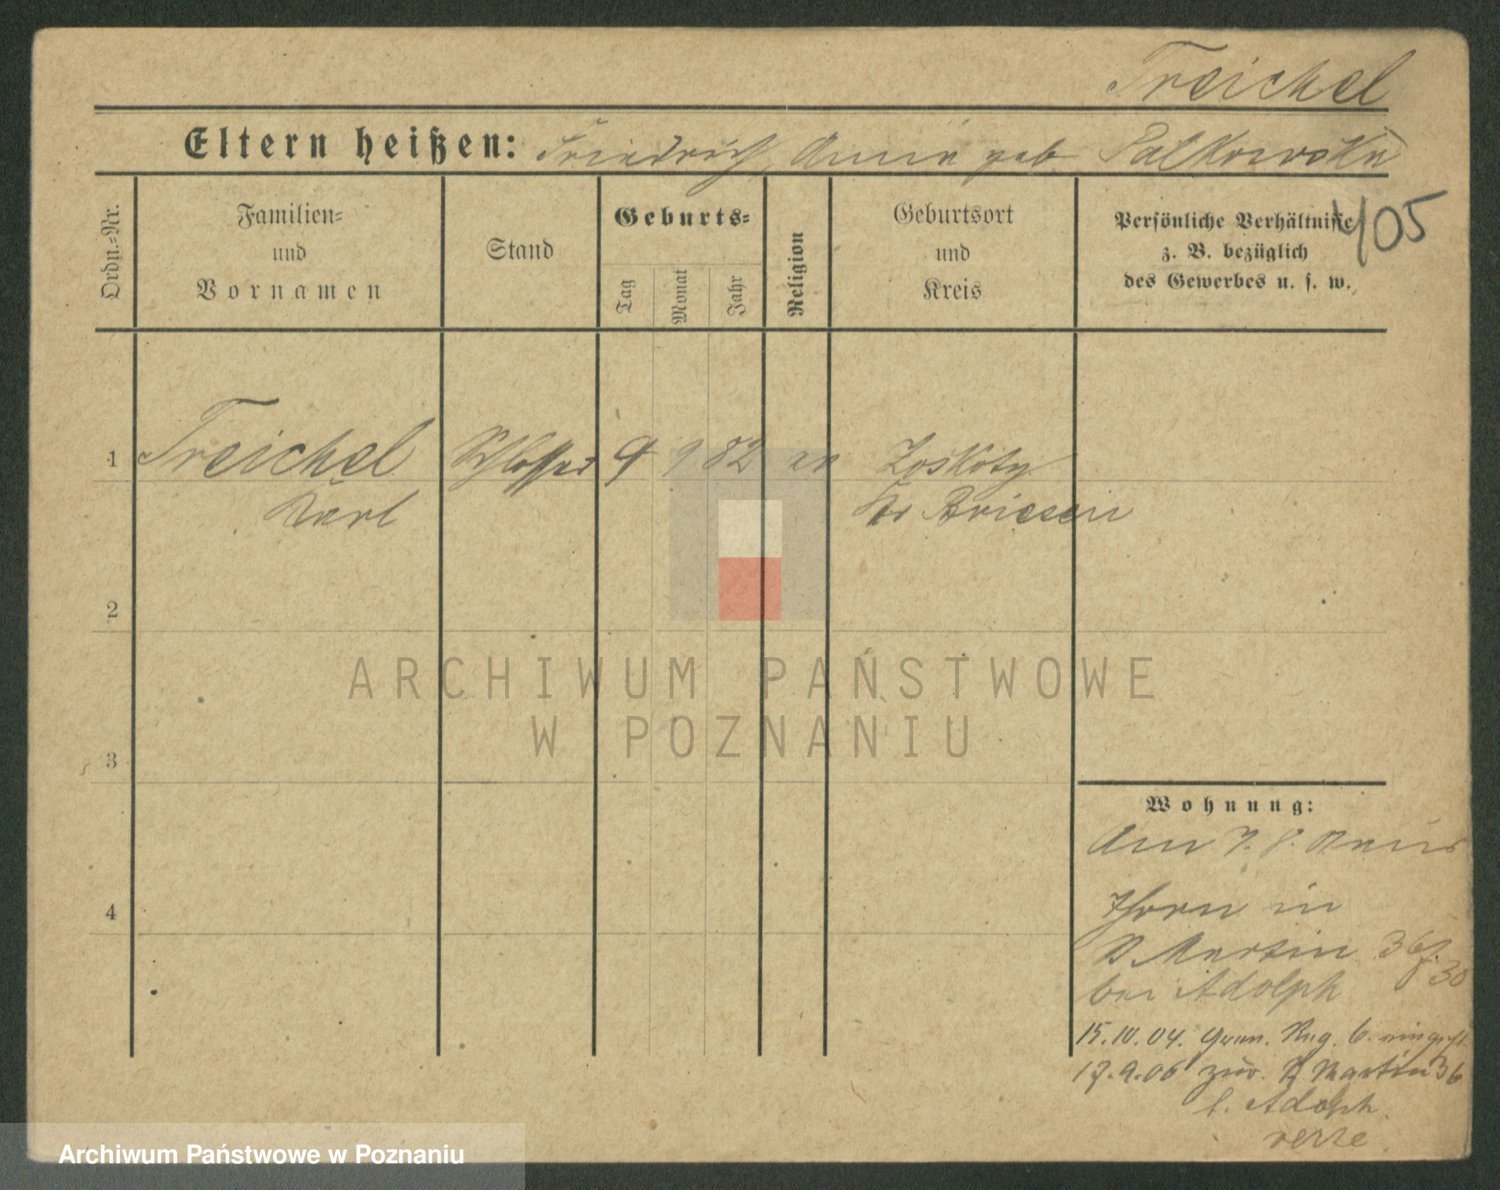 Treichel
Eltern heißen: Friedrich, Anna geb Palkowska
405
Ordn.-Nr.
Familien-
und
Vornamen
Stand
Geburts-
Tag
Monat
Jahr
Religion
Geburtsort
und
Kreis
Persönliche Verhältnisse
z. B. bezüglich
des Gewerbes u. s. w.
1 Treichel Schlosser 9 9 82 ev Zoskoty
Karl Kr Briesen
2
ARCHIWUM PAŃSTWOWE
W POZNANIU
3
Wohnung:
Am 7. 8.
Thorn in
St Martin 36
bei Adolph
15.10.04. Gren. Reg. 6.
17.9.06 zur. St Martin 36
b. Adolph
Archiwum Państwowe w Poznaniu